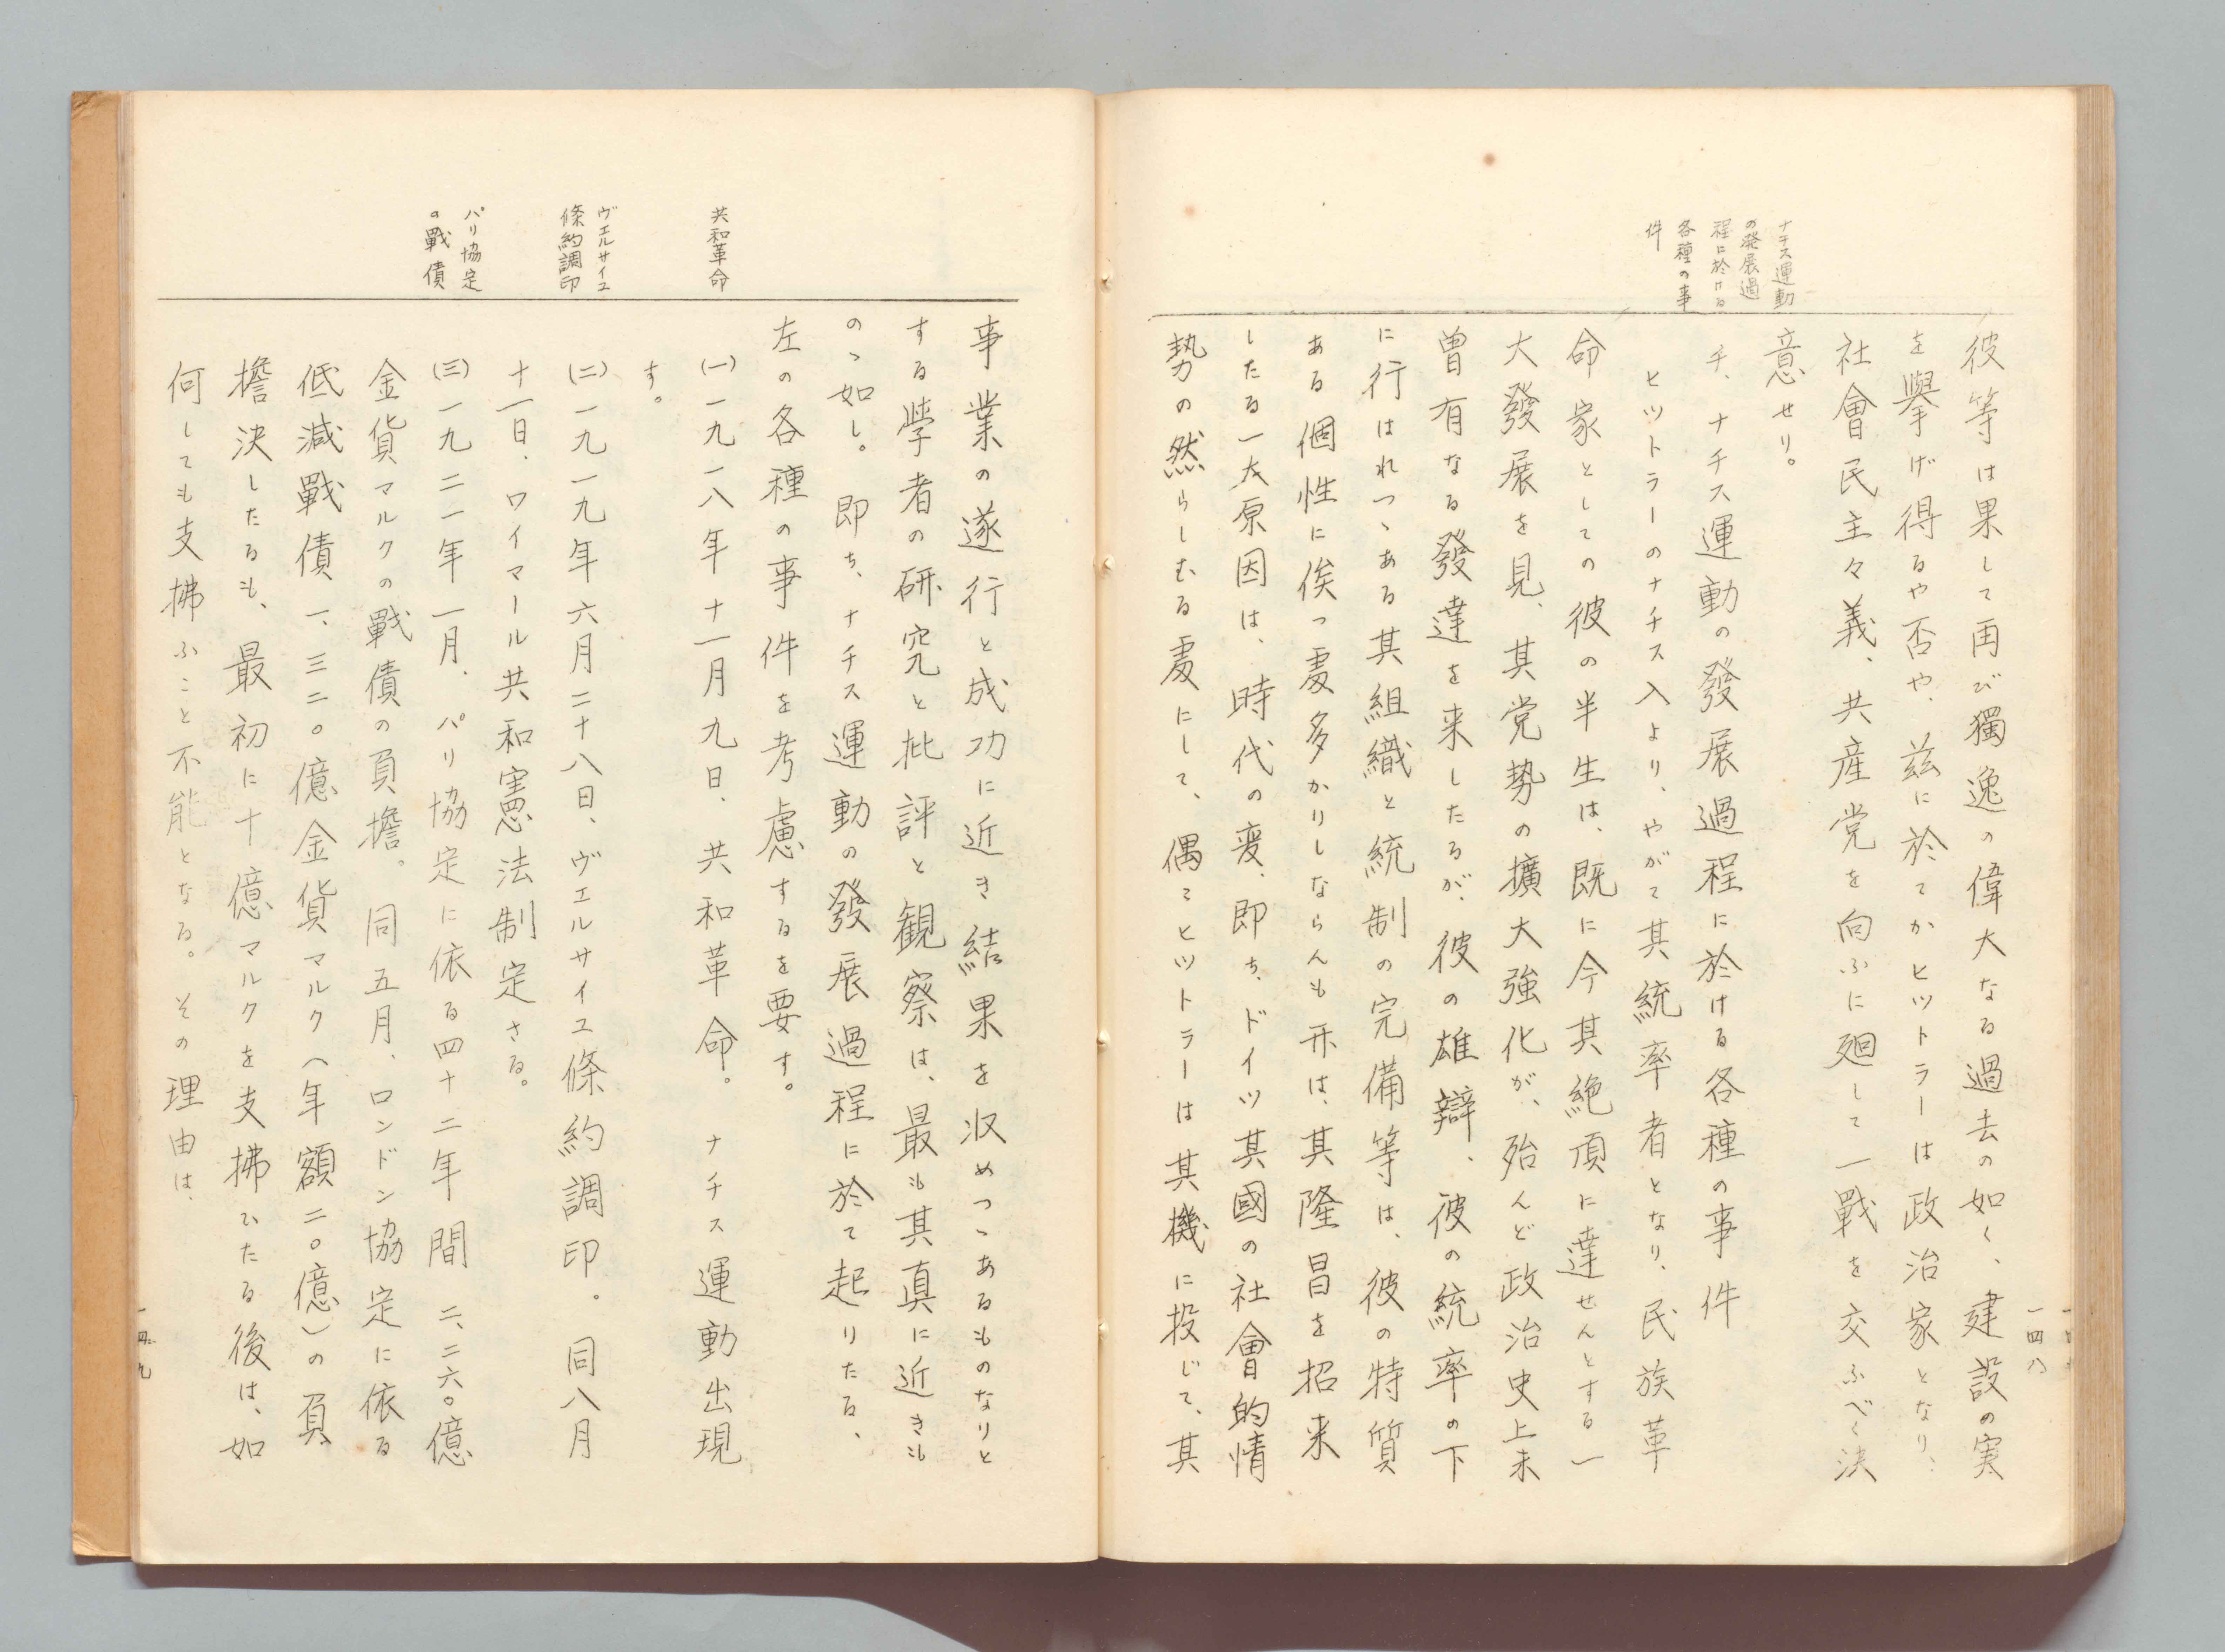 一四八
ナチス運動
の発展過
程に於ける
各種の事
件
彼等は果して再び獨逸の偉大なる過去の如く、建設の実
を擧げ得るや否や、茲に於てかヒットラーは政治家となり、
社會民主々義、共産党を向ふに廻して一戰を交ふべく決
意せり。
チ、ナチス運動の發展過程に於ける各種の事件
ヒットラーのナチス入より、やがて其統率者となり、民族革
命家としての彼の半生は、既に今其絶頂に達せんとする一
大發展を見、其党勢の擴大強化が、殆んど政治史上未
曽有なる發達を来したるが、彼の雄辯、彼の統率の下
に行はれつゝある其組織と統制の完備等は、彼の特質
ある個性に俟つ処多かりしならんも亦は、其隆昌を招来
したる一大原因は、時代の変、即ち、ドイツ其國の社會的情
勢の然らしむる処にして、偶てヒットラーは其機に投じて、其
共和革命
ヴェルサイユ
條約調印
パリ協定
の戰債
事業の遂行と成功に近き結果を収めつゝあるものなりと
する學者の研究と批評と観察は、最も其真に近きも
のゝ如し。即ち、ナチス運動の發展過程に於て起りたる、
左の各種の事件を考慮するを要す。
(一)一九一八年十一月九日、共和革命。ナチス運動出現
す。
(二)一九一九年六月二十八日、ヴェルサイユ條約調印。同八月
十一日、ワイマール共和憲法制定さる。
(三)一九二一年一月、パリ協定に依る四十二年間二、二六〇億
金貨マルクの戰債の負擔。同五月、ロンドン協定に依る
低減戰債一、三二〇億金貨マルク(年額二〇億)の負
擔決したるも、最初に十億マルクを支拂ひたる後は、如
何しても支拂ふこと不能となる。その理由は、
一四九